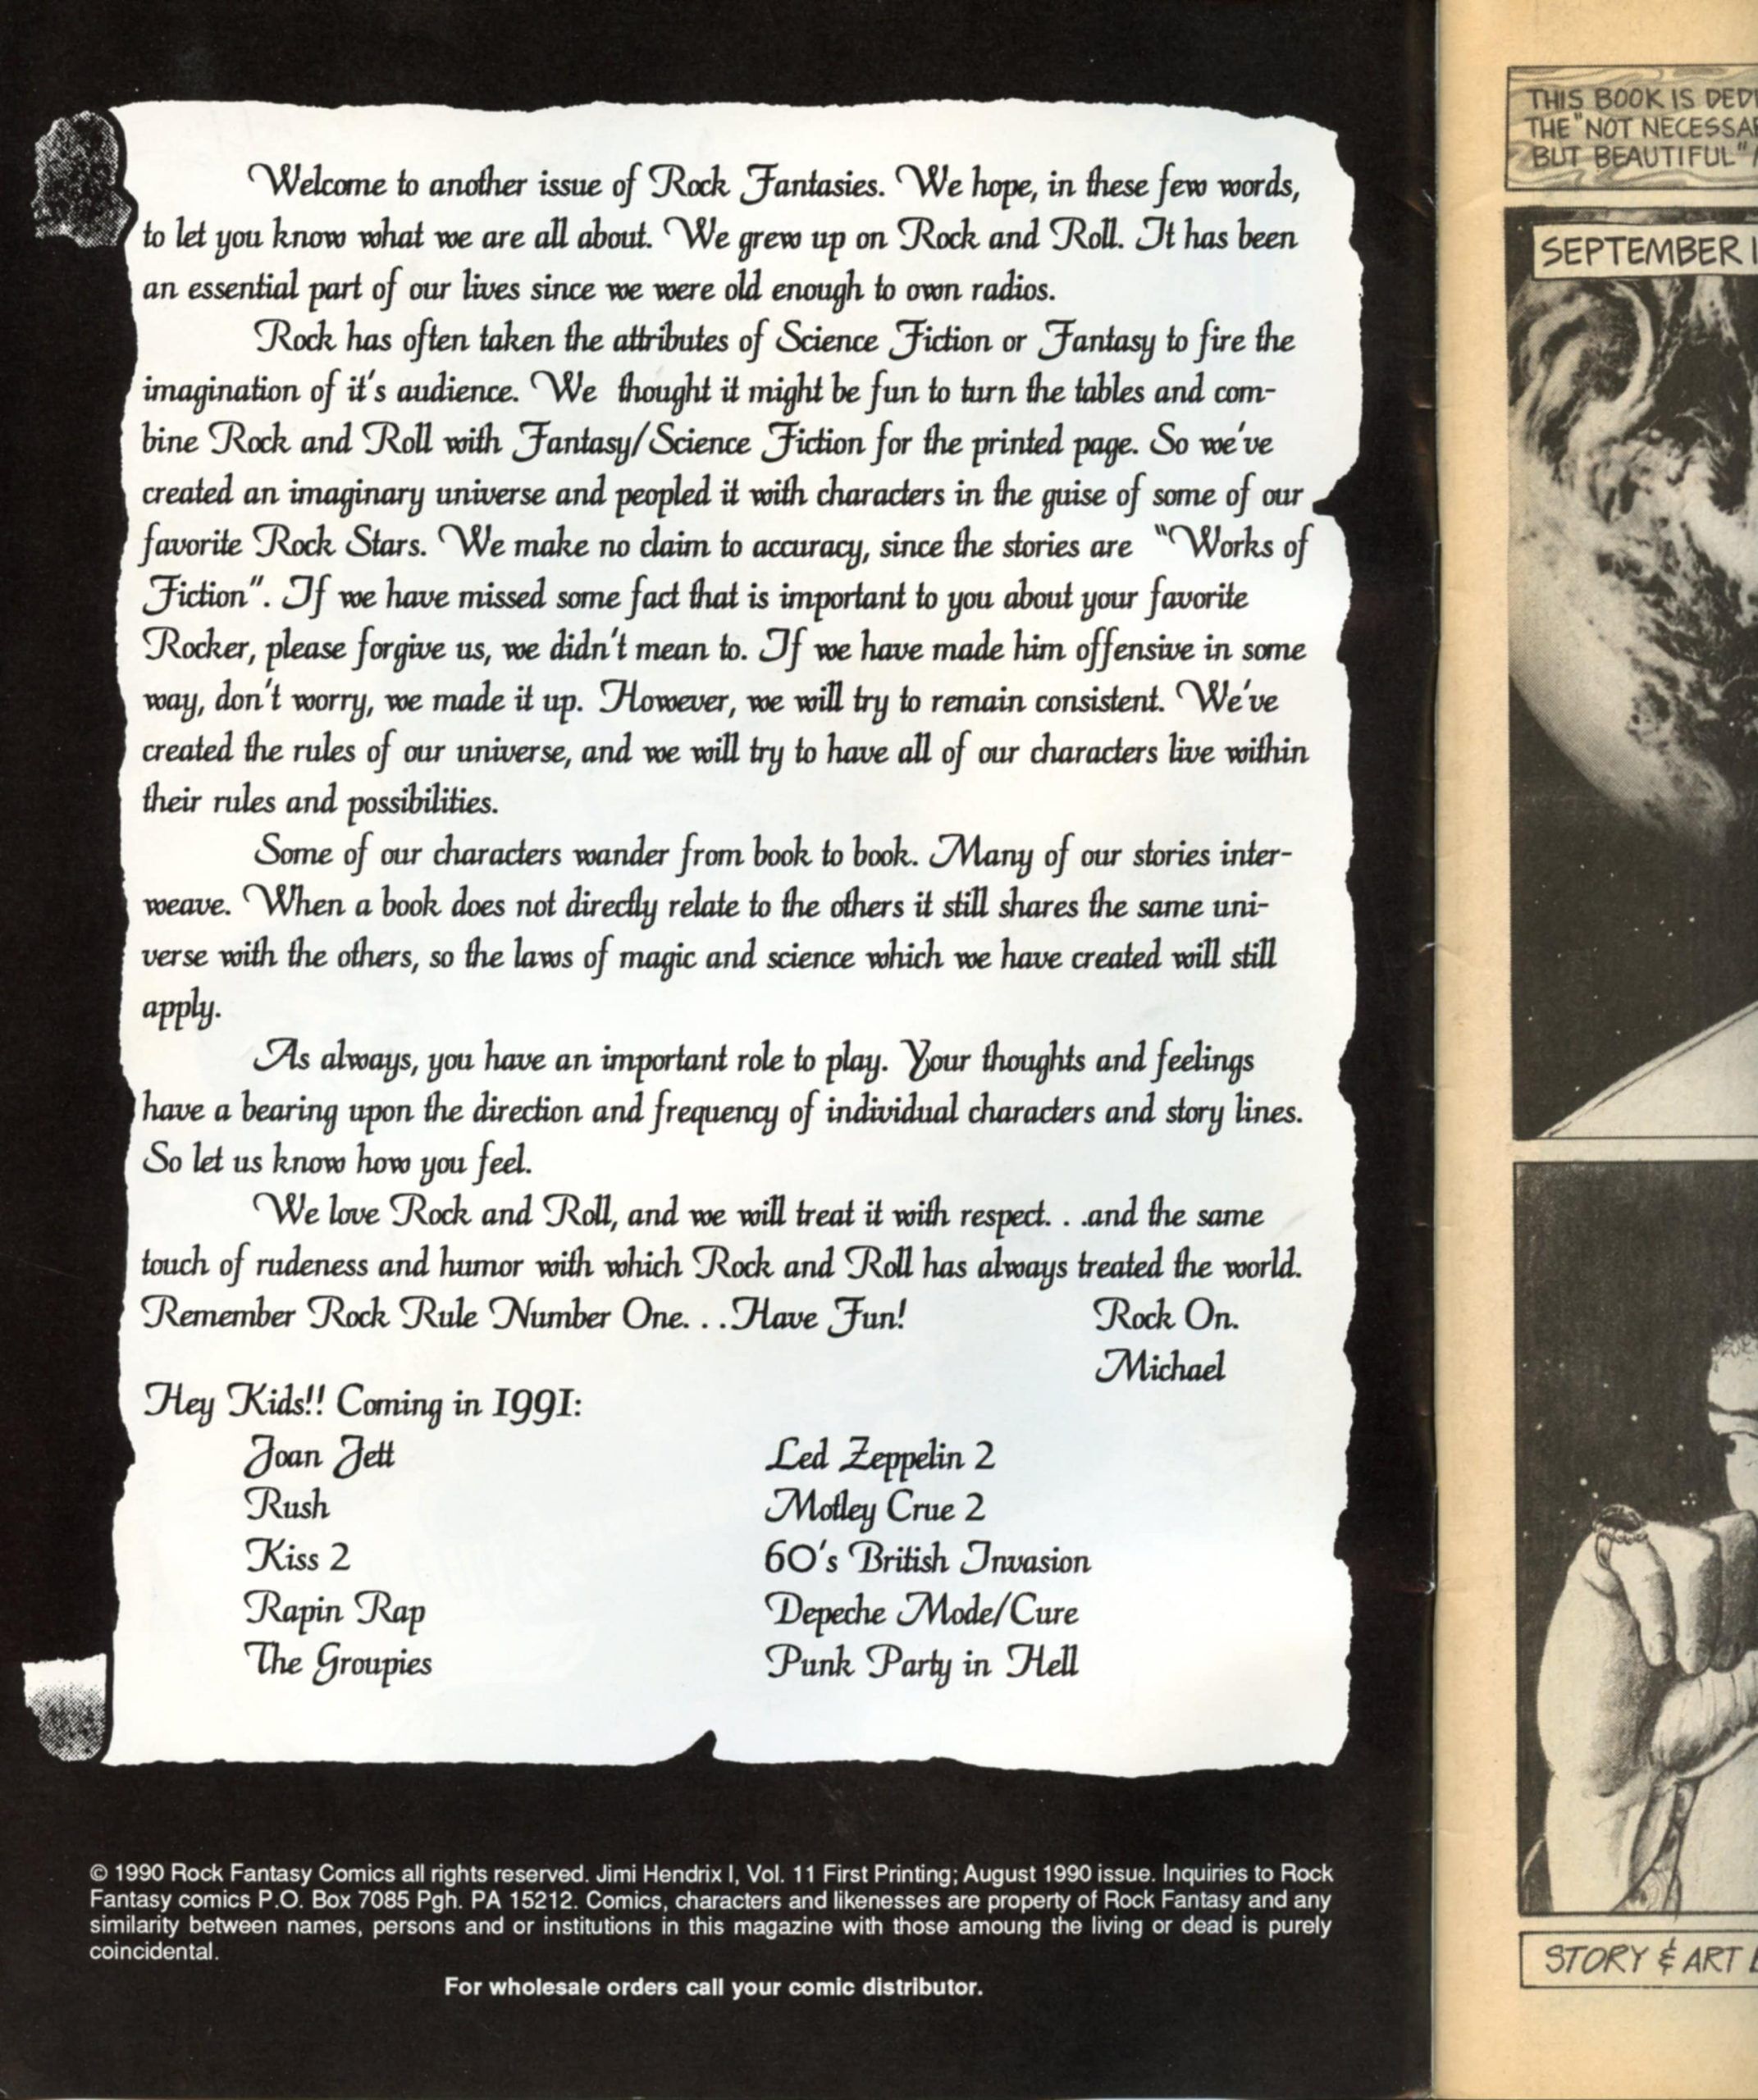 Welcome to another issue of Rock Fantasies. We hope, in these few words,
to let you know what we are all about. We grew up on Rock and Roll. It has been
an essential part of our lives since we were old enough to own radios.
Rock has often taken the attributes of Science Fiction or Fantasy to fire the
imagination of it's audience. We thought it might be fun to turn the tables and com-
bine Rock and Roll with Fantasy/Science Fiction for the printed page. So we've
created an imaginary universe and peopled it with characters in the guise of some of our
favorite Rock Stars. We make no claim to accuracy, since the stories are "Works of
Fiction". If we have missed some fact that is important to you about your favorite
Rocker, please forgive us, we didn't mean to. If we have made him offensive in some
way, don't worry, we made it up. However, we will try to remain consistent. We've
created the rules of our universe, and we will try to have all of our characters live within
their rules and possibilities.
Some of our characters wander from book to book. Many of our stories inter-
weave. When a book does not directly relate to the others it still shares the same uni-
verse with the others, so the laws of magic and science which we have created will still
apply.
As always, you have an important role to play. Your thoughts and feelings
have a bearing upon the direction and frequency of individual characters and story lines.
So let us know how you feel.
We love Rock and Roll, and we will treat it with respect. . .and the same
touch of rudeness and humor with which Rock and Roll has always treated the world.
Remember Rock Rule Number One. . .Have Fun! Rock On.
Michael
Hey Kids!! Coming in 1991:
Joan Jett
Rush
Kiss 2
Rapin Rap
The Groupies
Led Zeppelin 2
Motley Crue 2
60's British Invasion
Depeche Mode/Cure
Punk Party in Hell
© 1990 Rock Fantasy Comics all rights reserved. Jimi Hendrix I, Vol. 11 First Printing; August 1990 issue. Inquiries to Rock
Fantasy comics P.O. Box 7085 Pgh. PA 15212. Comics, characters and likenesses are property of Rock Fantasy and any
similarity between names, persons and or institutions in this magazine with those amoung the living or dead is purely
coincidental.
For wholesale orders call your comic distributor.
THIS BOOK IS
THE "NOT
BUT BEAUTIFUL"
SEPTEMBER
STORY & ART